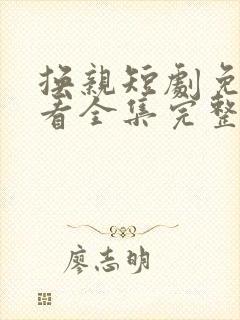 抚親短劇免
看全集完整
廖志明